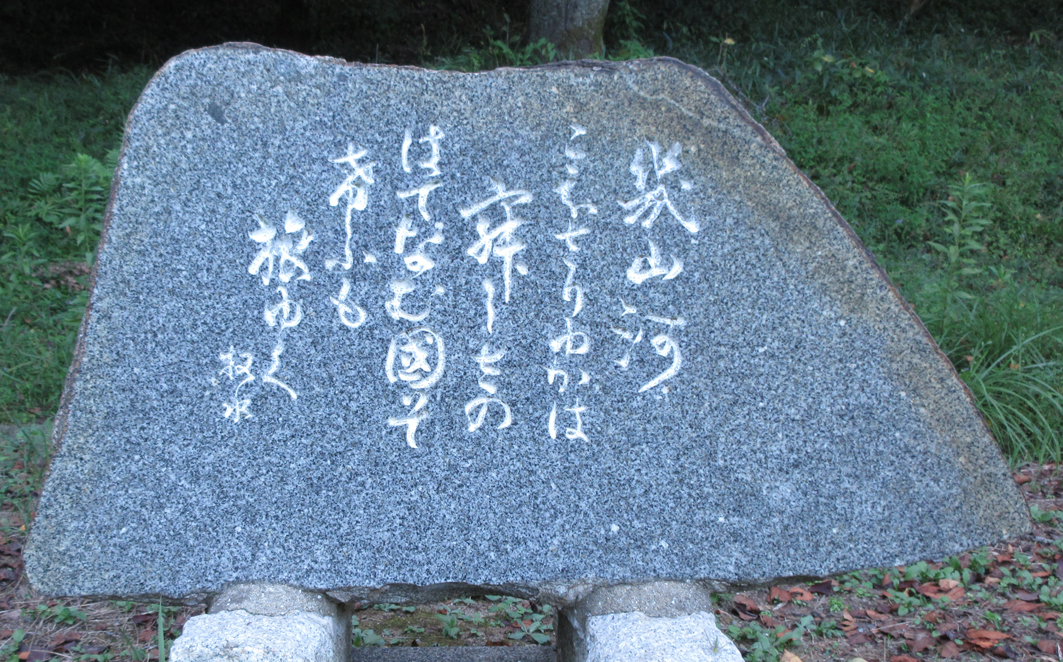 幾山河
こえさりゆかは
寂しさの
はてなむ國そ
けふも
旅ゆく
牧水